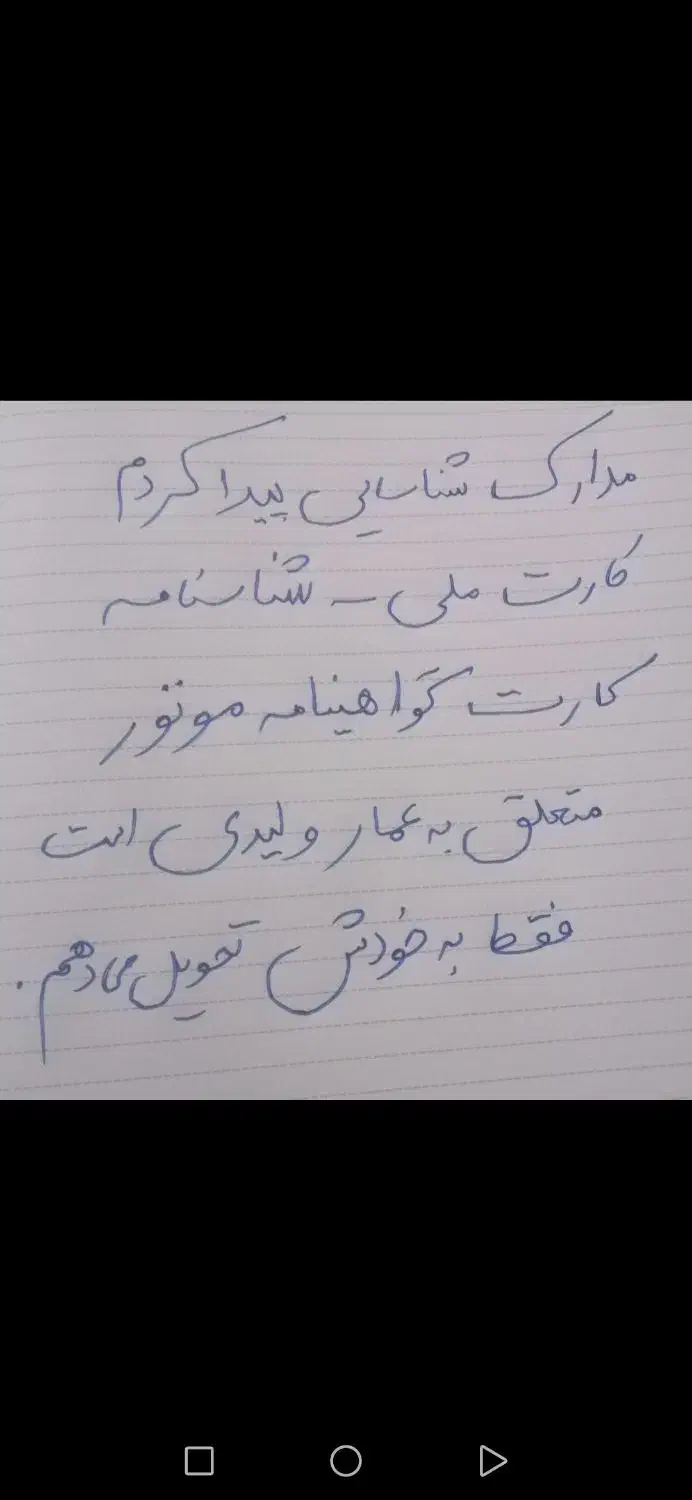 مدارک شناسایی پیدا کردم
کارت ملی - شناسنامه
کارت گواهینامه موتور
متعلق به عمار ولیدی است
فقط به خودش تحویل می دهم.